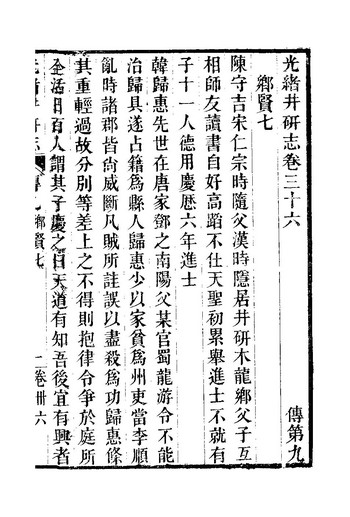 光緒井研志卷三十六　傳第九
鄉賢七
陳守吉宋仁宗時隨父漢時隱居井研木龍鄉父子互
相師友讀書自好高蹈不仕天聖初累舉進士不就有
子十一人德用慶歷六年進士
韓歸惠先世在唐家鄧之南陽父某官蜀龍游令不能
治歸具遂占籍爲縣人歸惠少以家貧爲州吏當李順
亂時諸郡皆尚威斷凡賊所詿誤以盡殺爲功歸惠條
其重輕過故分別等差上之不得則抱律令爭於庭所
全活日百人謂其子慶之曰天道有知吾後宜有興者
鄉賢七　一　卷卅六